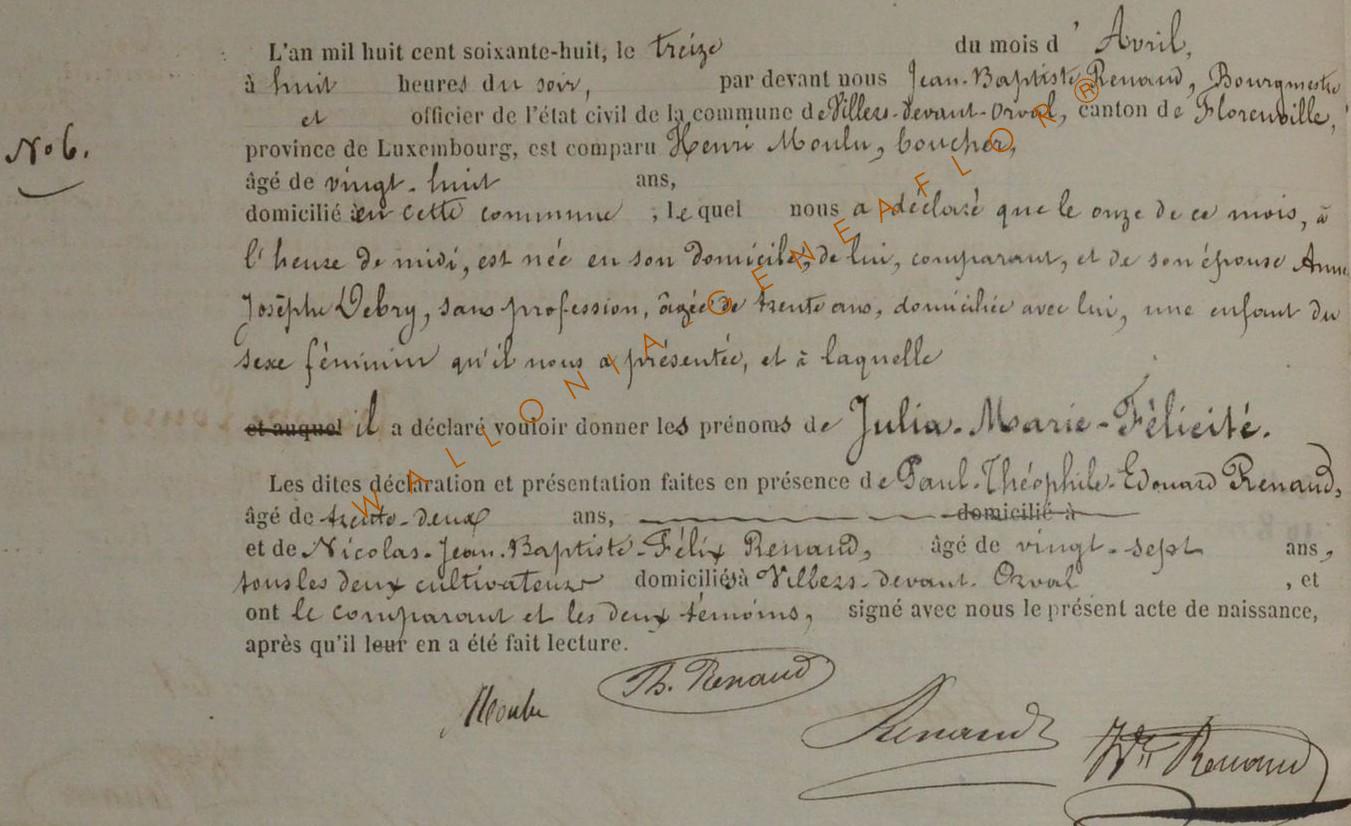 L'an mil huit cent soixante-huit, le treize du mois d' Avril,
à huit heures du soir, par devant nous Jean-Baptiste Renaud, Bourgmestre
et officier de l'état civil de la commune de Villers-devant-Orval, canton de Florenville,
N° 6.
province de Luxembourg, est comparu Henri Moulu, boucher,
âgé de vingt-huit ans,
domicilié en cette commune ; lequel nous a déclaré que le onze de ce mois, à
l'heure de midi, est née en son domicile, de lui, comparant, et de son épouse Anne
Josèphe Debry, sans profession, âgée de trente ans, domiciliée avec lui, une enfant du
sexe féminin qu'il nous a présentée, et à laquelle
et auquel il a déclaré vouloir donner les prénoms de Julia-Marie-Félicité.
Les dites déclaration et présentation faites en présence de Paul-Théophile-Edouard Renaud,
âgé de trente-deux ans, domicilié à
et de Nicolas-Jean-Baptiste-Félix Renaud, âgé de vingt-sept ans,
tous les deux cultivateurs domiciliés à Villers-devant-Orval , et
ont le comparant et les deux témoins, signé avec nous le présent acte de naissance,
après qu'il leur en a été fait lecture.
Moulu Th. Renaud
Renaud Renaud
WALLONIA GENEAFLOR®